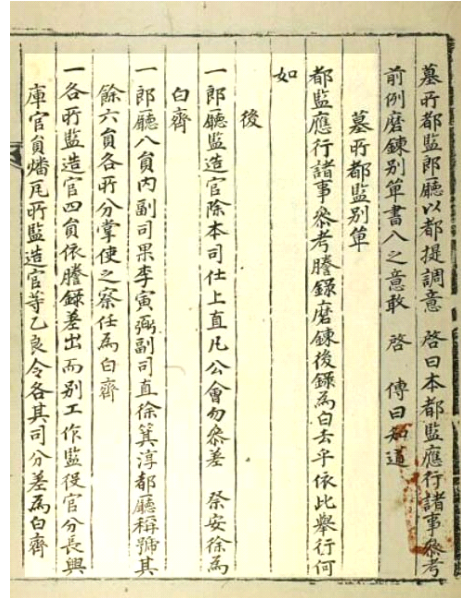 墓所都監郎廳以都提調意 啓曰本都監應行諸事叅考
前例磨鍊別單書入之意敢 啓 傳曰知道
墓所都監別單
都監應行諸事叅考謄錄磨鍊後錄爲白去乎依此擧行何
如
後
一郎廳監造官除本司仕上直凡公會勿叅差 祭安徐爲
白齊
一郎廳八員內副司果李寅弼副司直徐箕淳都廳稱號其
餘六員各所分掌使之察任爲白齊
一各所監造官四員依謄錄差出而別工作監役官分長興
庫官員燔瓦所監造官等乙良令各其司分差爲白齊